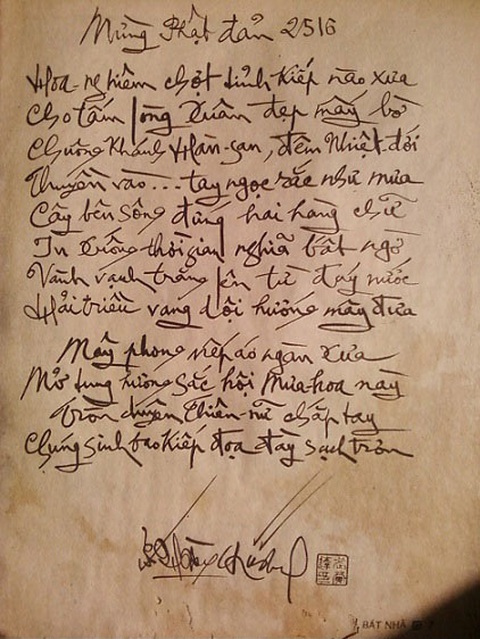 Mừng Phật đản 2516
Hoa-nghiêm chợt tỉnh kiếp nào xưa
Cho tấm lòng Xuân đẹp mấy bờ
Chuông Khánh Hàn-san, đêm Nhiệt-đới
Thuyền vào... tay ngọc rắc như mưa
Cây bên sông đứng hai hàng chữ
In xuống thời gian nghĩa bất ngờ
Vành vạnh trăng lên từ đáy nước
Hải triều vang dội hướng mây đưa
Mây phong nếp áo ngàn xưa
Mở tung hương sắc hội Mùa-hoa này
Tròn duyên Thiên-nữ chắp tay
Chúng sinh bao kiếp đọa đày sạch trơn
BÁT NHÃ